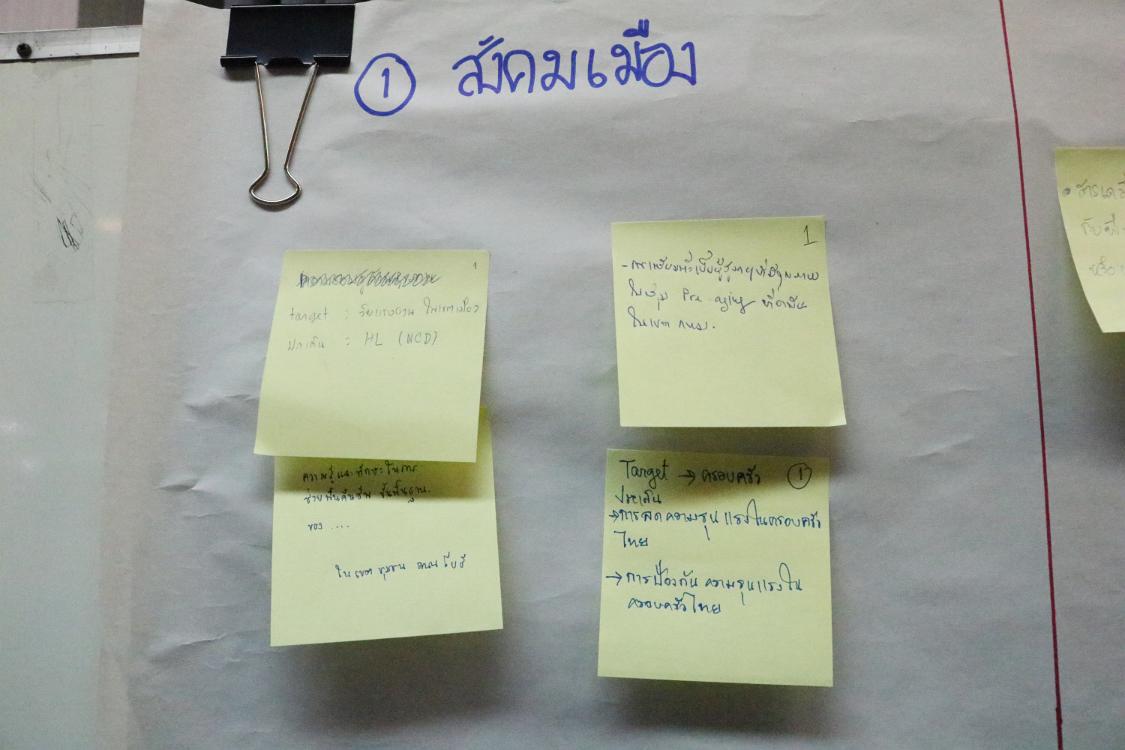 ① สังคมเมือง
1
target : วัยแรงงาน ในเขตเมือง
ประเด็น : HL (NCD)
ความรู้และทักษะในการ
ช่วยฟื้นคืนชีพ ขั้นพื้นฐาน.
ของ ....
ในเขต ชุมชน
1
- การเตรียมตัวเป็นผู้สูงอายุที่มี
ในกลุ่ม Pre-aging
ในเขต กทม.
Target → ครอบครัว ①
ประเด็น
→ การลดความรุนแรงในครอบครัว
ไทย
→ การป้องกัน ความรุนแรงใน
ครอบครัวไทย